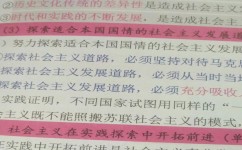 ②历史文化传统的差异性是造成社会主义
③时代和实践的不断发展，是造成社会主
(3) 探索适合本国国情的社会主义发展道
努力探索适合本国国情的社会主义发展
探索社会主义道路，必须坚持对待马克思
探索社会主义发展道路，必须从当时当
探索社会主义发展道路，必须充分吸收
实践证明，不同国家试图用同样的“一
义既不能照搬苏联社会主义的模式，
社会主义在实践探索中开拓前进（单
在实践探索中开拓前进是社会主义